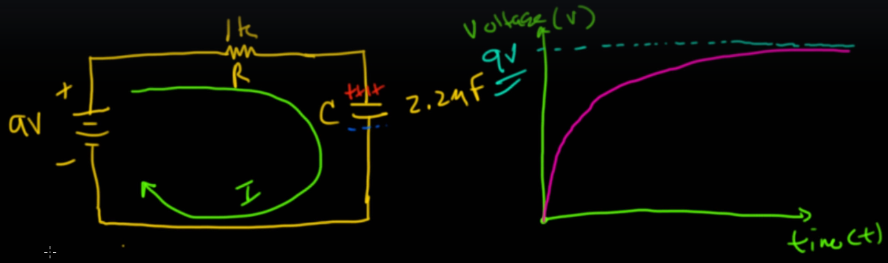 1k
R
+
9V
-
C
+++
---
2.2μF
I
Voltage (V)
9V
time(t)